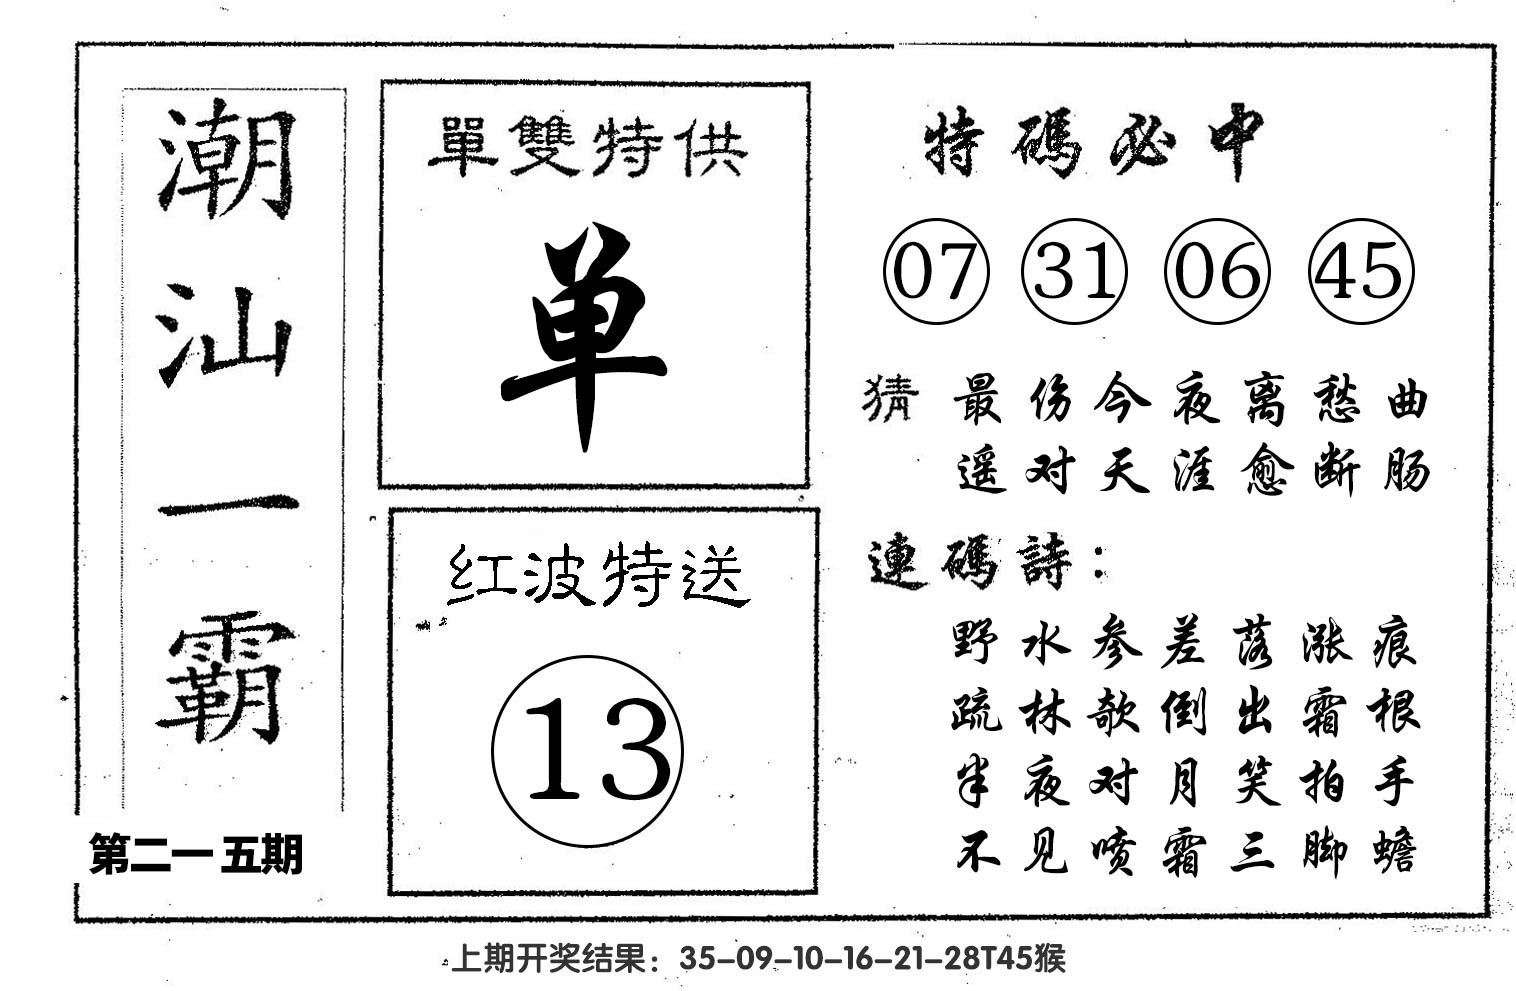 潮汕一霸
第二一五期
單雙特供
单
红波特送
13
特碼必中
07 31 06 45
猜 最伤今夜离愁曲
遥对天涯愈断肠
連碼詩：
野水参差落涨痕
疏林欹倒出霜根
半夜对月笑拍手
不见喷霜三脚蟾
上期开奖结果：35-09-10-16-21-28T45猴